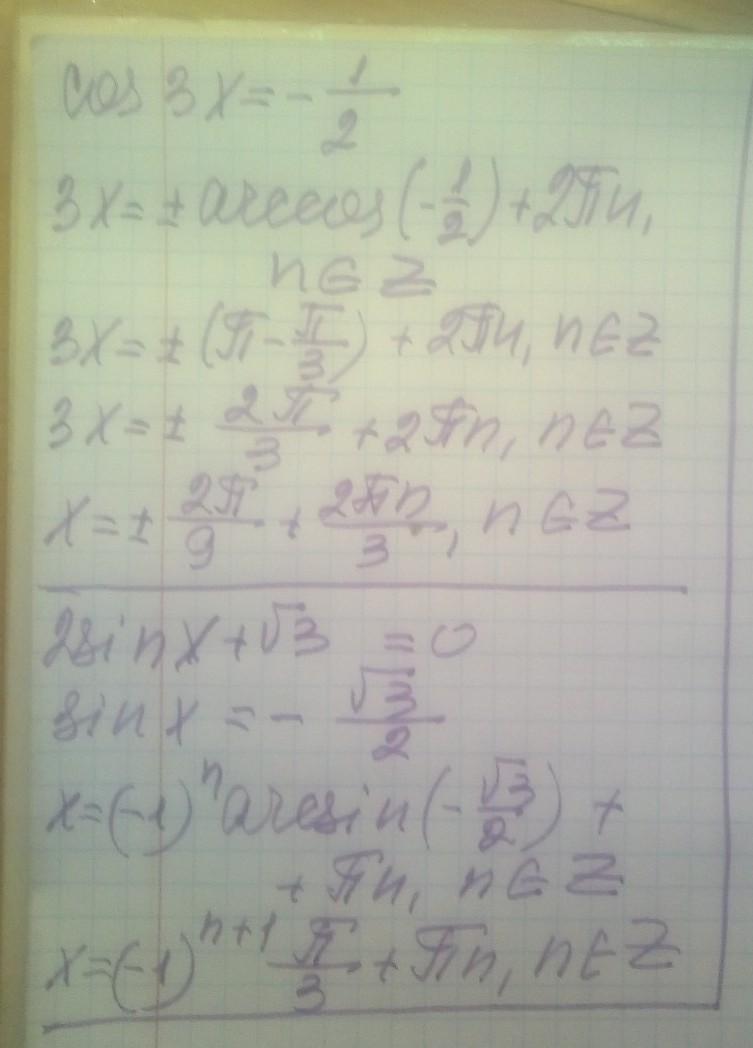 cos 3x = - 1/2
3x = ± arccos(-1/2) + 2πn,
n ∈ Z
3x = ± (π - π/3) + 2πn, n ∈ Z
3x = ± 2π/3 + 2πn, n ∈ Z
x = ± 2π/9 + 2πn/3, n ∈ Z
2sin x + √3 = 0
sin x = - √3/2
x = (-1)^n arcsin(-√3/2) +
+ πn, n ∈ Z
x = (-1)^(n+1) π/3 + πn, n ∈ Z